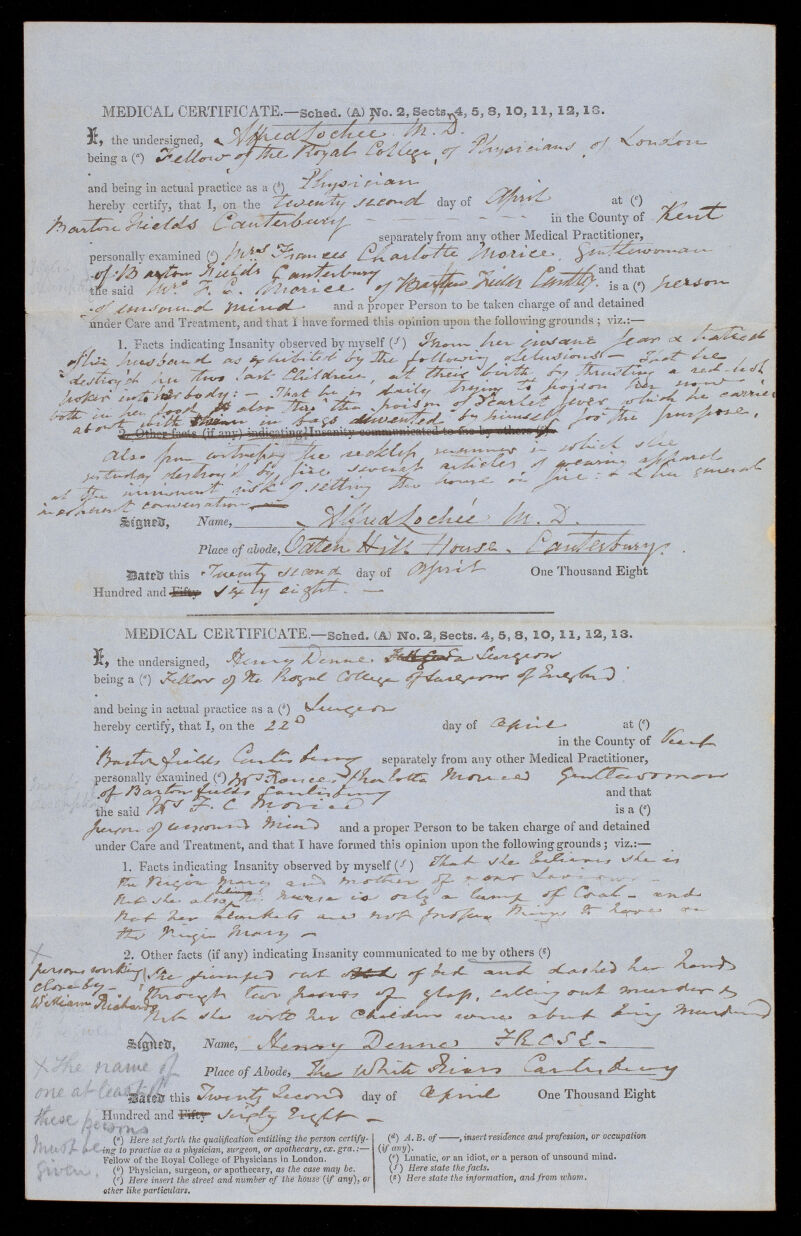 MEDICAL CERTIFICATE.—Sched. (A) No. 2, Sects. 4, 5, 8, 10, 11, 12, 13.
I, the undersigned, Alfred Lochée M.D.
being a (a) Fellow of the Royal College of Physicians of London
and being in actual practice as a (b) Physician
hereby certify, that I, on the twenty second day of April at (c)
Barton Fields Canterbury in the County of Kent
separately from any other Medical Practitioner,
personally examined (d) Mrs Frances Charlotte Morice, Gentlewoman
of Barton Fields Canterbury and that
the said Mrs F. C. Morice of Barton Fields is a (e) person
of unsound mind and a proper Person to be taken charge of and detained
under Care and Treatment, and that I have formed this opinion upon the following grounds ; viz.:—
1. Facts indicating Insanity observed by myself (f) From her insane fear & hatred
of her husband as exhibited by the following delusions — That he
destroyed her two last Children, at their birth by thrusting a red-hot
poker into her body: — That he is daily trying to poison her now
both in her food & also the poison of Scarlet fever which he carries
about with in bags invented by himself for the purpose.
2. Other facts (if any) indicating Insanity communicated to me by others (g)
Also from witnessing the reckless manner in which she
yesterday destroyed by fire several articles of wearing apparel
at the imminent risk of setting the house on fire: & her general
incoherent conversation —
Signed, Name, Alfred Lochée M.D.
Place of abode, Oaten Hill House. Canterbury.
Dated this Twenty second day of April One Thousand Eight
Hundred and Fifty sixty eight. —
MEDICAL CERTIFICATE.—Sched. (A) No. 2, Sects. 4, 5, 8, 10, 11, 12, 13.
I, the undersigned, Henry Denne Surgeon
being a (a) Fellow of the Royal College of Surgeons of England
and being in actual practice as a (b) Surgeon
hereby certify, that I, on the 22D day of April at (c)
in the County of Kent
Barton fields Canterbury separately from any other Medical Practitioner,
personally examined (d) Mrs Frances Charlotte Morice Gentlewoman
of Barton fields Canterbury and that
the said Mrs F. C Morice is a (e)
person of unsound Mind and a proper Person to be taken charge of and detained
under Care and Treatment, and that I have formed this opinion upon the following grounds ; viz.:—
1. Facts indicating Insanity observed by myself (f) That she believes she is
the Virgin Mary and mother of our Saviour
that she also nurse is only a lump of Coal — and
that her blankets are not proper things to have on
the Virgin Mary —
2. Other facts (if any) indicating Insanity communicated to me by others (g)
x
persons working
close by —
William Richards
She jumped out of bed and dashed her hands
through two panes of glass, calling out murder &
that she with her Children were about being Murdered
Signed, Name, Henry Denne FRCSE —
Place of Abode, The White Friars Canterbury
Dated this Twenty Second day of April One Thousand Eight
Hundred and Fifty Sixty Eight —
x The name of
one at least of
these persons
must be
given.
(a) Here set forth the qualification entitling the person certify-
ing to practise as a physician, surgeon, or apothecary, ex. gra.:—
Fellow of the Royal College of Physicians in London.
(b) Physician, surgeon, or apothecary, as the case may be.
(c) Here insert the street and number of the house (if any), or
other like particulars.
(d) A. B. of ——, insert residence and profession, or occupation
(if any).
(e) Lunatic, or an idiot, or a person of unsound mind.
(f) Here state the facts.
(g) Here state the information, and from whom.